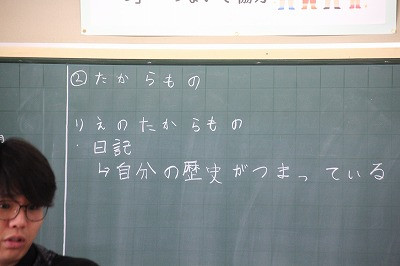 ②たからもの
りえのたからもの
・日記
↳自分の歴史がつまっている